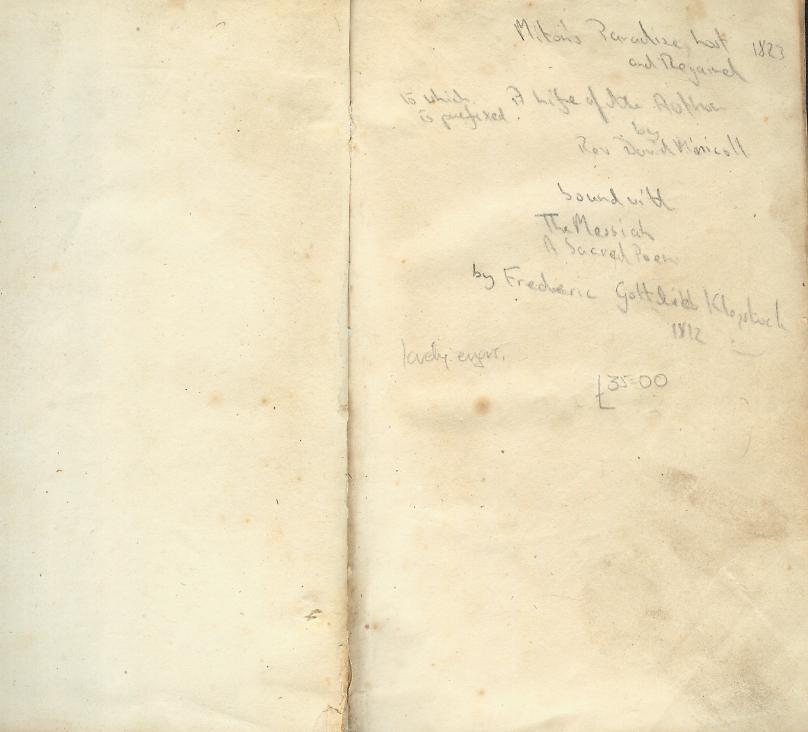 Milton's Paradise Lost 1823
and Regained
to which A Life of the Author
is prefixed
by
Rev David M'Nicoll
bound with
The Messiah
A Sacred Poem
by Frederic Gottlieb Klopstock
1812
lovely engr.
£35=00